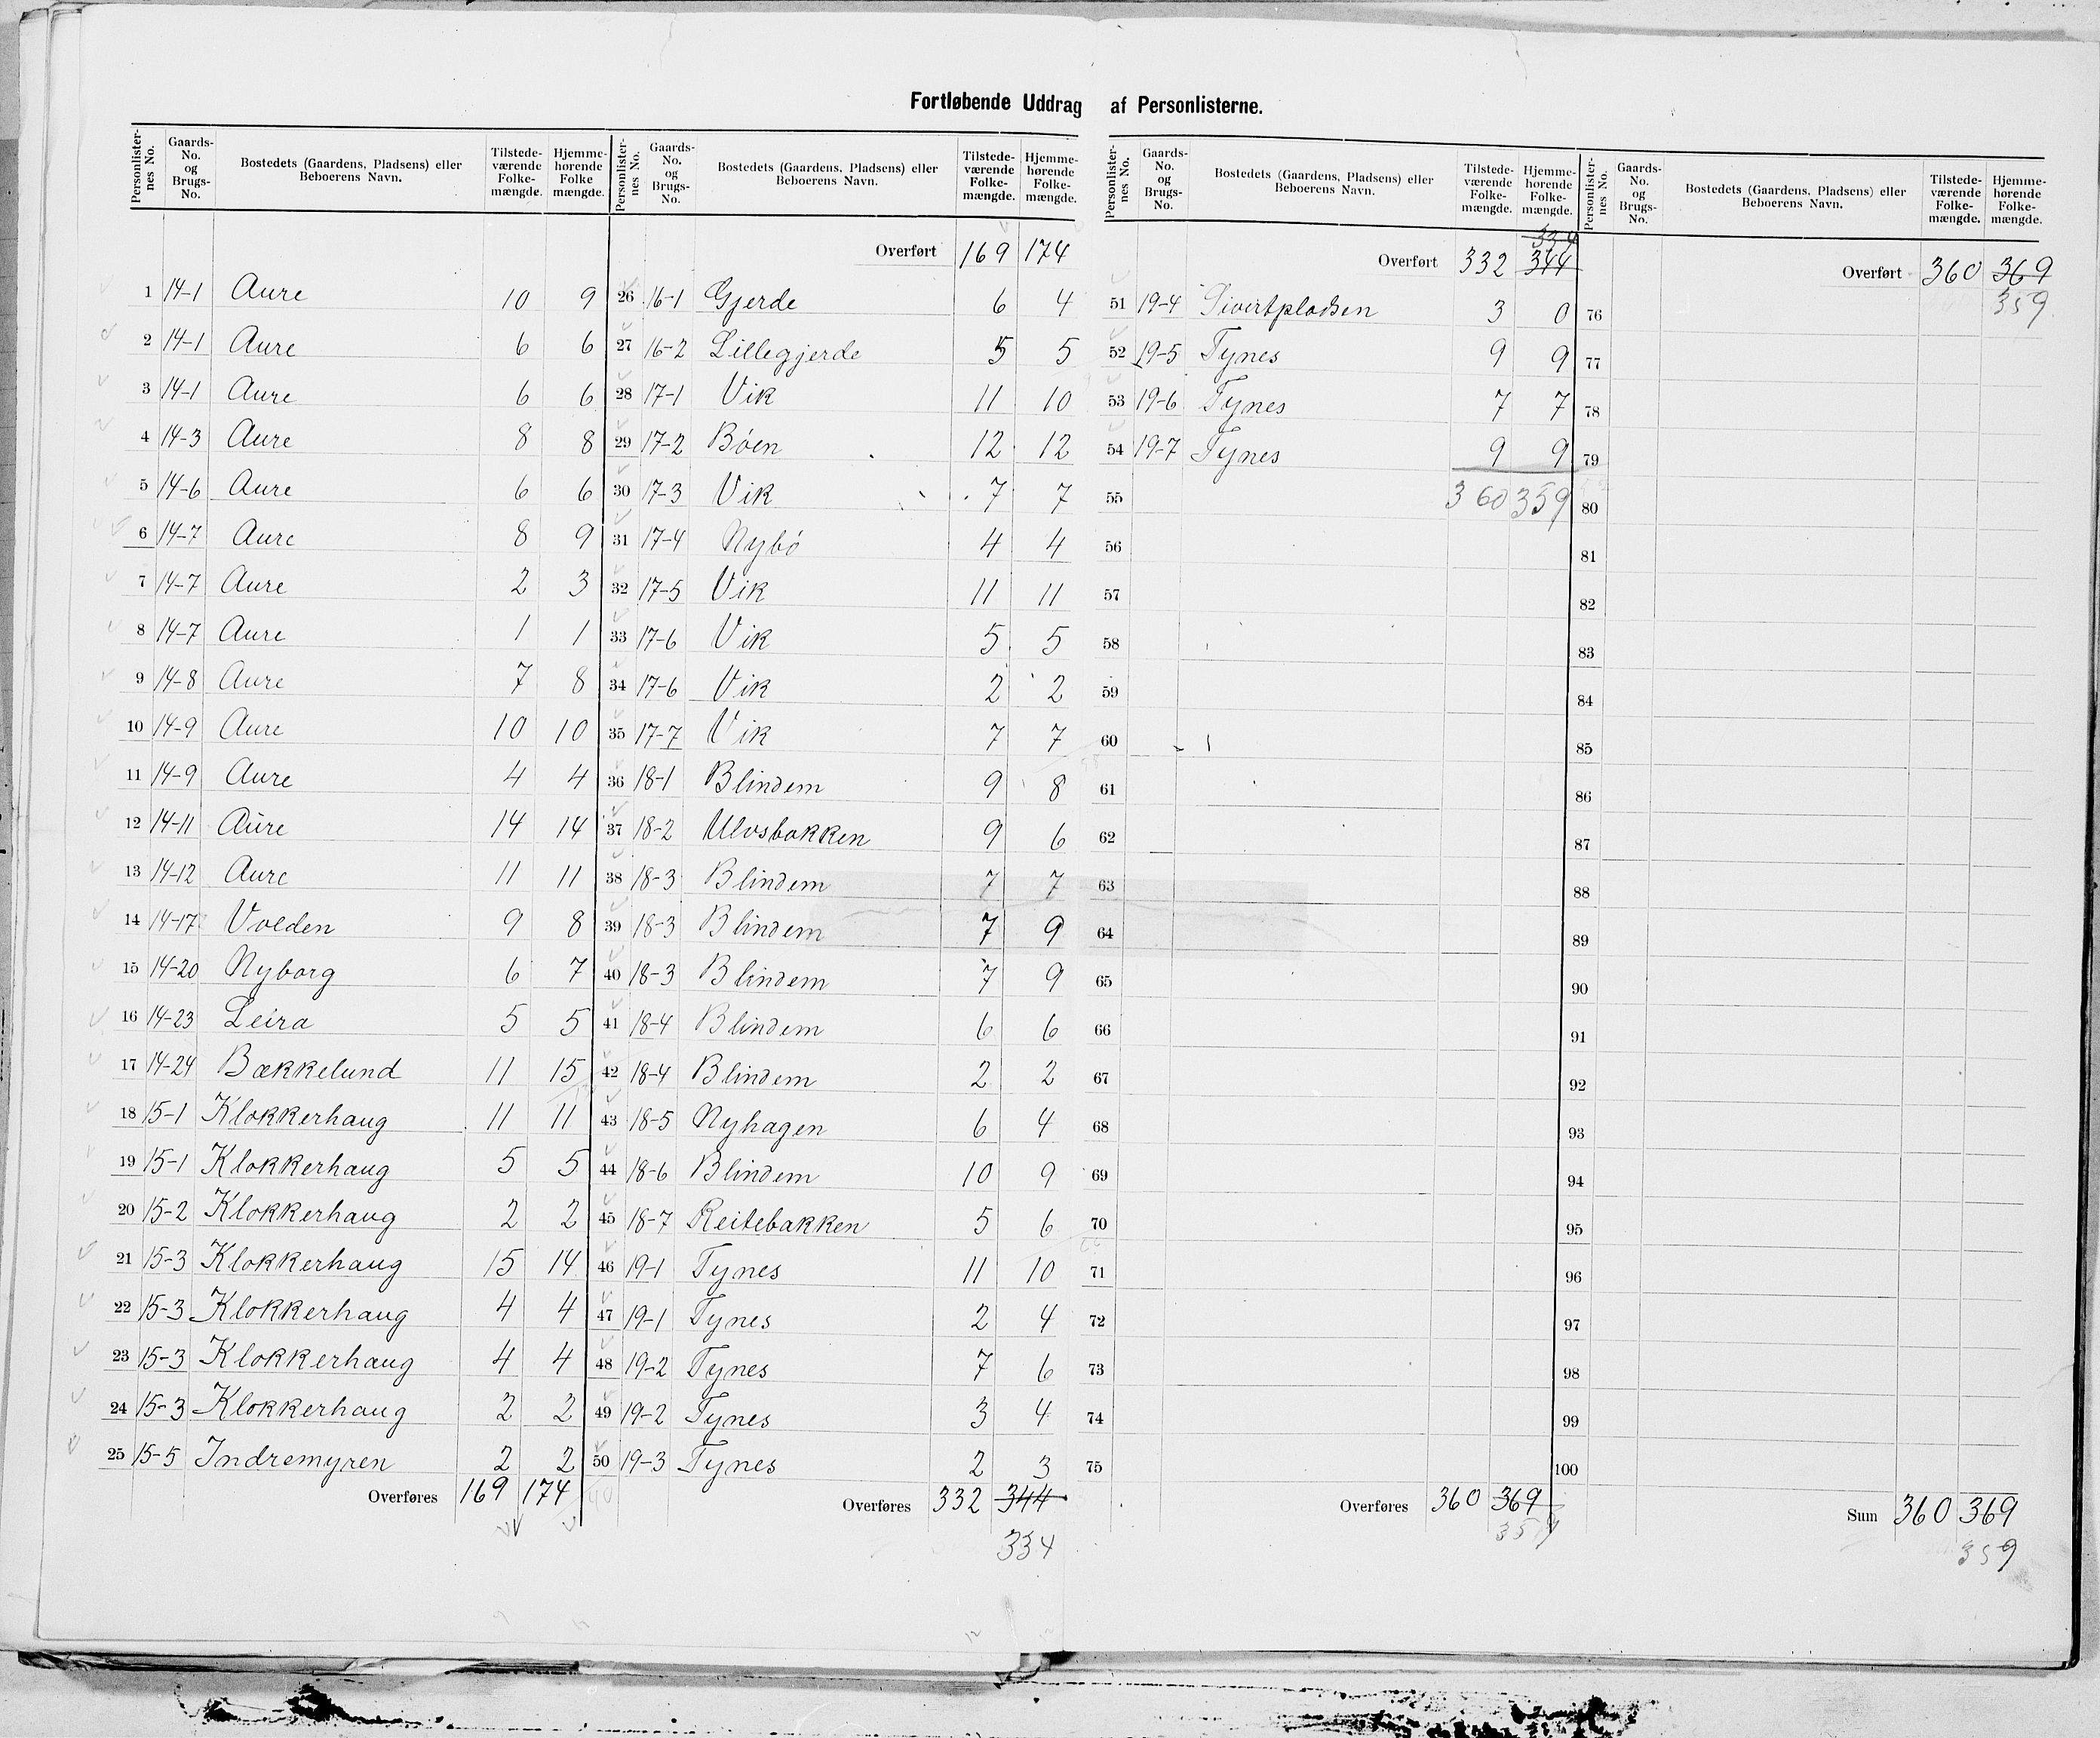 Fortløbende Uddrag af Personlisterne.
Personlisternes No. Gaards-No. og Brugs-No. Bostedets (Gaardens, Pladsens) eller Beboerens Navn. Tilstedeværende Folkemængde. Hjemmehørende Folke mængde.
1 14-1 Aure 10 9
2 14-1 Aure 6 6
3 14-1 Aure 6 6
4 14-3 Aure 8 8
5 14-6 Aure 6 6
6 14-7 Aure 8 9
7 14-7 Aure 2 3
8 14-7 Aure 1 1
9 14-8 Aure 7 8
10 14-9 Aure 10 10
11 14-9 Aure 4 4
12 14-11 Aure 14 14
13 14-12 Aure 11 11
14 14-17 Volden 9 8
15 14-20 Nyborg 6 7
16 14-23 Leira 5 5
17 14-24 Bækkelund 11 15
18 15-1 Klokkerhaug 11 11
19 15-1 Klokkerhaug 5 5
20 15-2 Klokkerhaug 2 2
21 15-3 Klokkerhaug 15 14
22 15-3 Klokkerhaug 4 4
23 15-3 Klokkerhaug 4 4
24 15-3 Klokkerhaug 2 2
25 15-5 Indremyren 2 2
Overføres 169 174
Personlisternes No. Gaards-No. og Brugs-No. Bostedets (Gaardens, Pladsens) eller Beboerens Navn. Tilstedeværende Folke-mængde. Hjemmehørende Folke-mængde.
Overført 169 174
26 16-1 Gjerde 6 4
27 16-2 Lillegjerde 5 5
28 17-1 Vik 11 10
29 17-2 Bøen 12 12
30 17-3 Vik 7 7
31 17-4 Nybø 4 4
32 17-5 Vik 11 11
33 17-6 Vik 5 5
34 17-6 Vik 2 2
35 17-7 Vik 7 7
36 18-1 Blindem 9 8
37 18-2 Ulvsbakken 9 6
38 18-3 Blindem 7 7
39 18-3 Blindem 7 9
40 18-3 Blindem 7 9
41 18-4 Blindem 6 6
42 18-4 Blindem 2 2
43 18-5 Nyhagen 6 4
44 18-6 Blindem 10 9
45 18-7 Reitebakken 5 6
46 19-1 Tynes 11 10
47 19-1 Tynes 2 4
48 19-2 Tynes 7 6
49 19-2 Tynes 3 4
50 19-3 Tynes 2 3
Overføres 332 344
334
Personlisternes No. Gaards-No. og Brugs-No. Bostedets (Gaardens, Pladsens) eller Beboerens Navn. Tilstedeværende Folke-mængde. Hjemmehørende Folke-mængde.
334
Overført 332 344
51 19-4 Sivertpladsen 3 0
52 19-5 Tynes 9 9
53 19-6 Tynes 7 7
54 19-7 Tynes 9 9
55 360 359
56
57
58
59
60
61
62
63
64
65
66
67
68
69
70
71
72
73
74
75
Overføres 360 369
359
Personlisternes No. Gaards-No. og Brugs-No. Bostedets (Gaardens, Pladsens) eller Beboerens Navn. Tilstedeværende Folke-mængde. Hjemmehørende Folke-mængde.
Overført 360 369
359
76
77
78
79
80
81
82
83
84
85
86
87
88
89
90
91
92
93
94
95
96
97
98
99
100
Sum 360 369
359